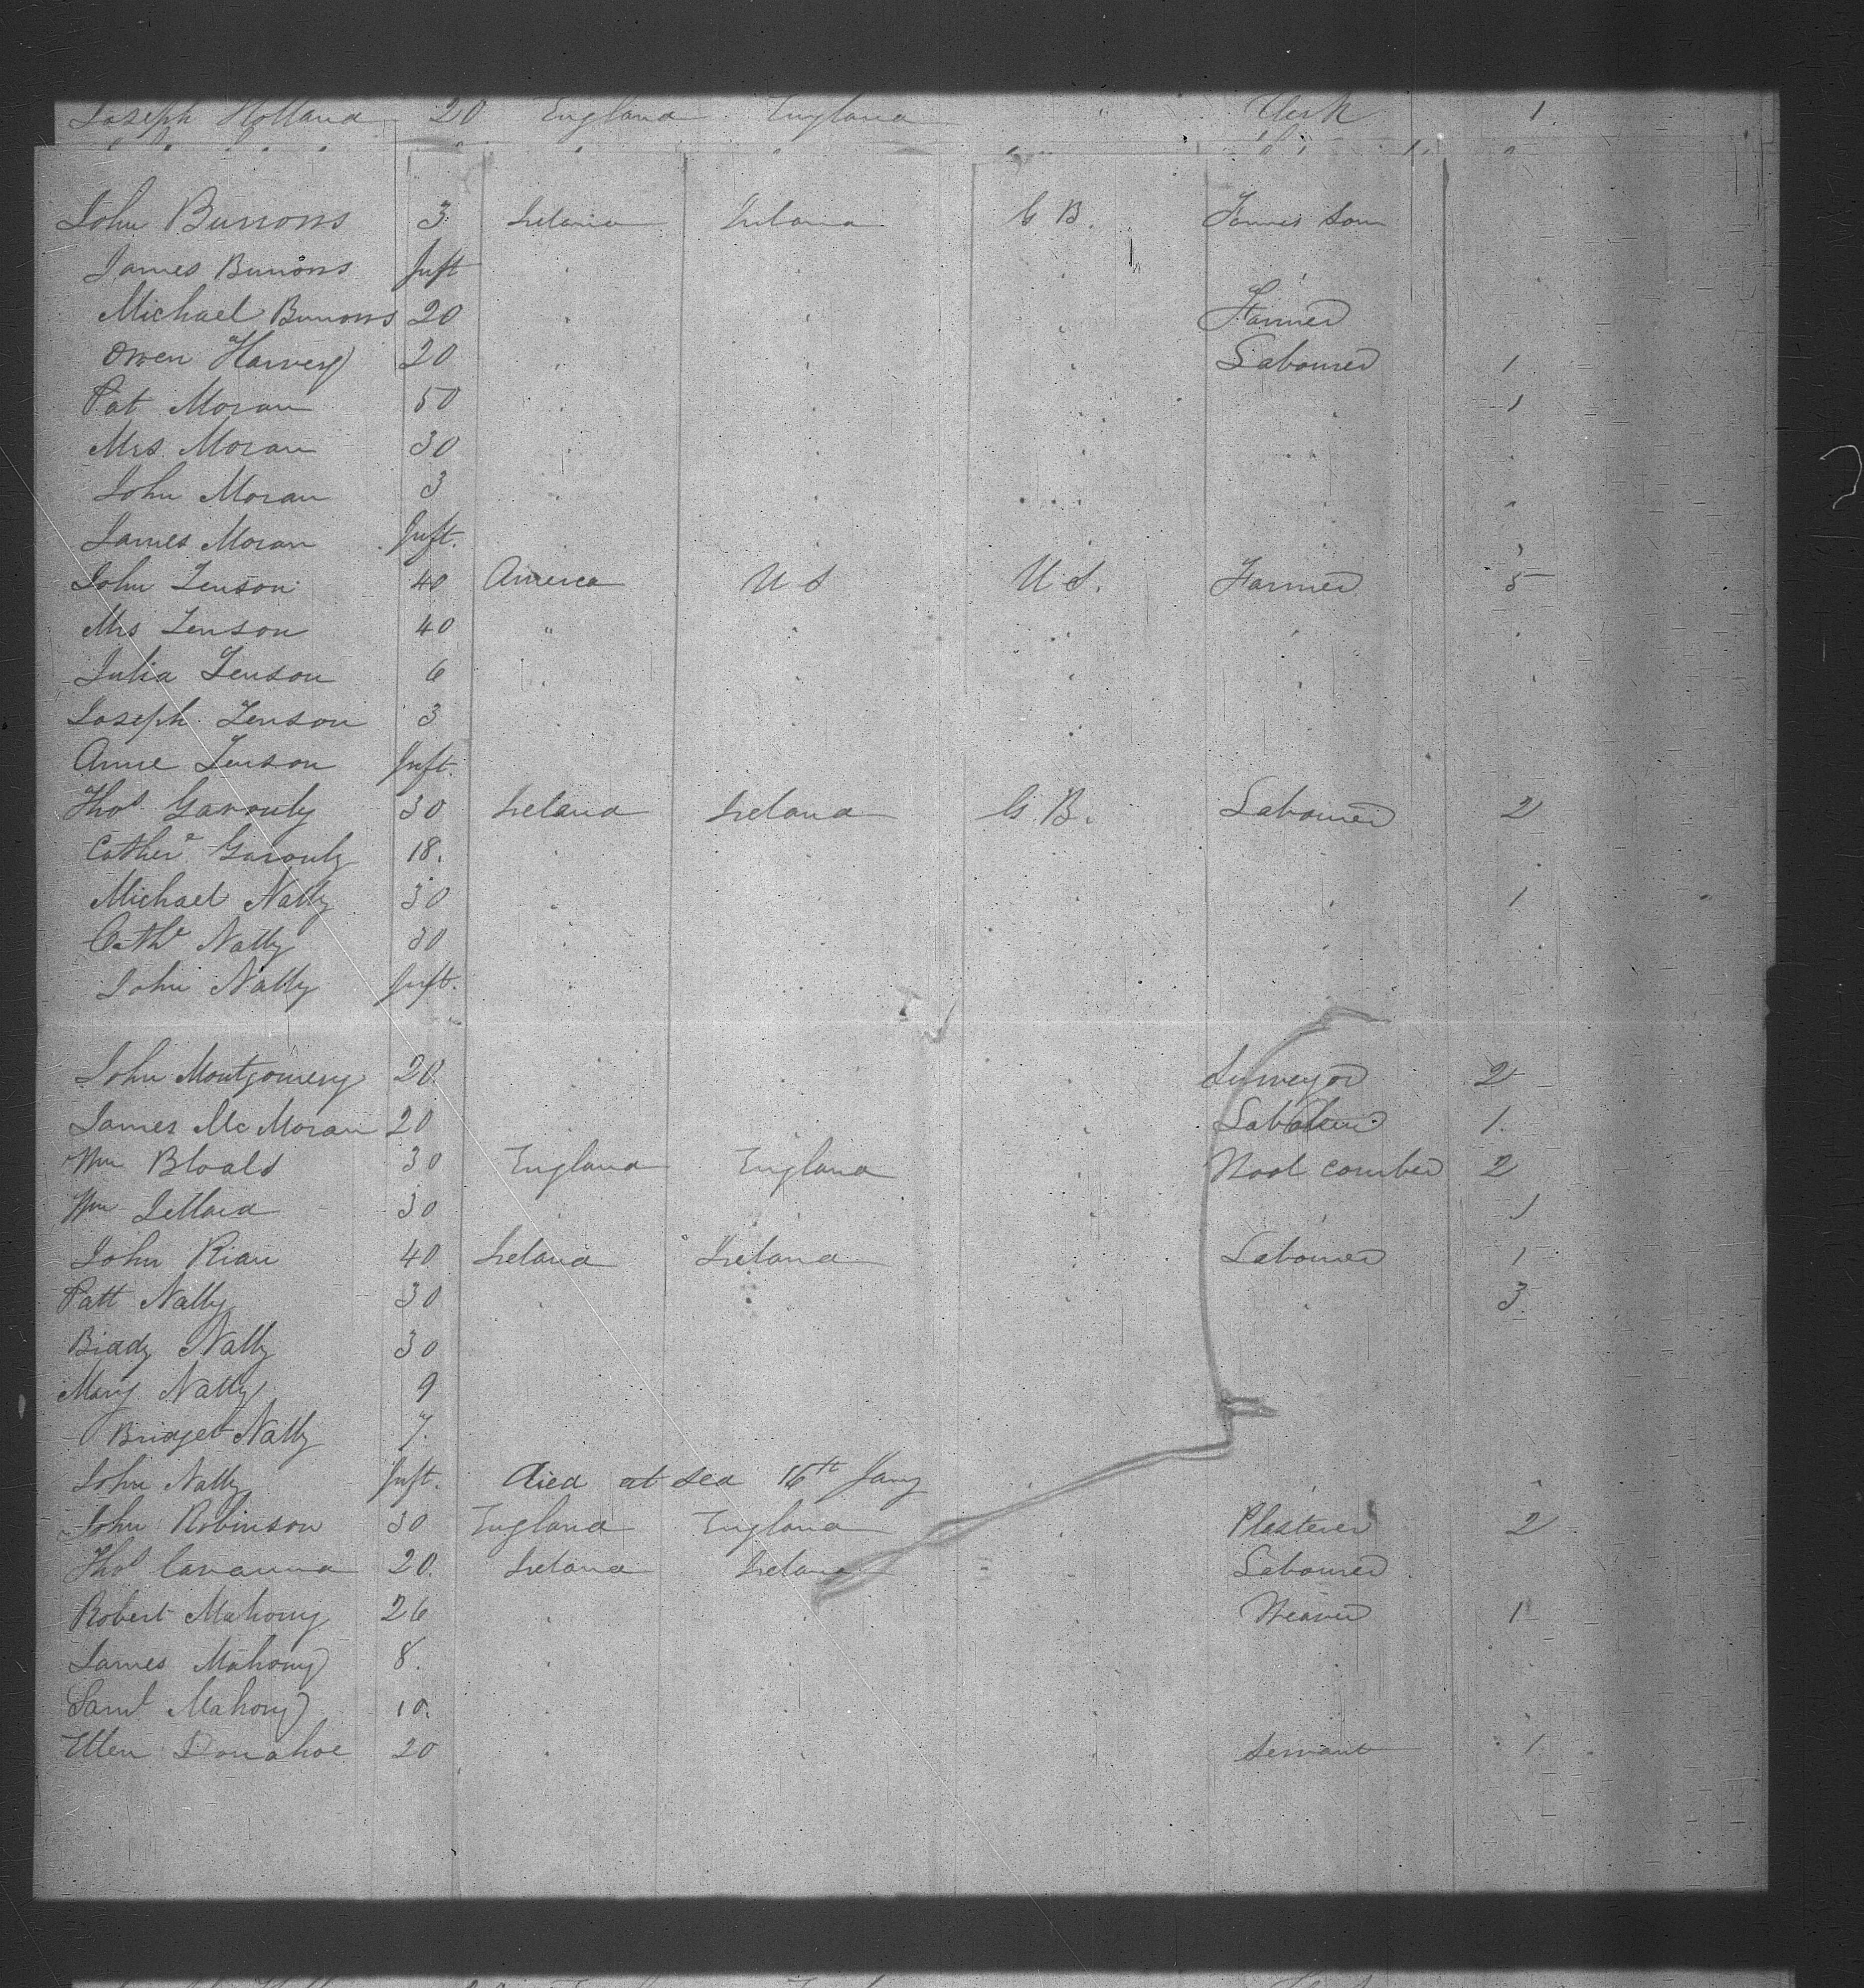 Joseph Holland 20 England England " Clerk 1.
John Burrows 3 Ireland Ireland G B. Farmers Son
James Burrows Inft
Michael Burrows 20 Farmer
Owen Harvey 20 Labourer 1
Pat Moran 50 1
Mrs Moran 30
John Moran 3
James Moran Inft.
John Jenson 40 America U S U S. Farmer 5
Mrs Jenson 40 "
Julia Jenson 6
Joseph Jenson 3
Anne Jenson Inft.
Thos 30 Ireland Ireland G. B. Labourer 2
Cathe 18.
Michael Nally 30 1
Cathe Nally 30
John Nally Inft.
John Montgomery 20 Surveyor 2
James Mc Moran 20 1.
Wm 30 England England Wool comber 2
Wm 30 1
John Rian 40 Ireland Ireland Labourer 1
Patt Nally 30 3.
Biddy Nally 30
Mary Nally 9
Bridget Nally 7.
John Nally Inft. died at sea 16th Jany
John Robinson 30 England England Plasterer 2
Thos Cavanna 20. Ireland Ireland Labourer
Robert Mahony 26 Weaver 1
James Mahony 8.
Saml Mahony 10.
Ellen Donahoe 20 Servant 1